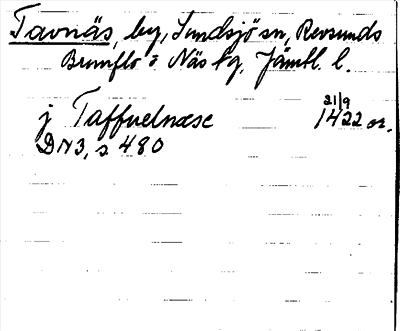 Tavnäs, by, Sundsjö sn, Revsunds
Brunflo o Näs tg, Jämtl. l.
21/9
j Taffuelnæse 1422 or.
DN3, s 480